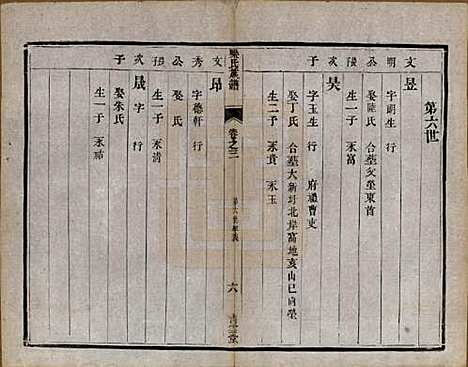 第六世
文昱
明 字明生 行
公 娶陸氏 合墓父塋東首
長 生一子 永富
次昊
子 字玉生 行 府通曹吏
娶丁氏 合墓大新圩北岸高地亥山巳向塋
生二子 永貴 永玉
氏族譜
卷之三
第六世
六
文昂
秀 字德軒 行
公 娶 氏
長 生一子 永清
次晟
子 字 行
娶朱氏
生一子 永